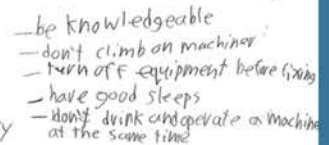 - be knowledgeable
- don't climb on machiner
- turn off equipment before fixing
- have good sleeps
- don't drink and operate a machine
at the same time
y